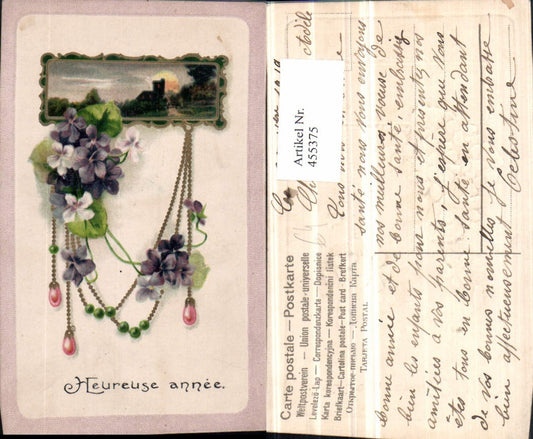 Heureuse année.
Artikel Nr.
455375
Carte postale — Postkarte
Weltpostverein — Union postale universelle
Levelező-Lap — Correspondenzkarte — Dopisnice
Karta korespondencyjna — Korespondenční lístek
Briefkaart — Cartolina postale — Post card — Brefkort
Открытое письмо — Дописна Карта
TARJETA POSTAL
santé nous vous envoyons
nos meilleurs voeux de
bonne année et de bonne santé, embrassez
bien les enfants pour nous et présentez nos
amitiées a vos parents, j'espère que vous
êtes tous en bonne santé en attendant
de vos bonnes nouvelles je vous embrasse
bien affectueusement Celestine